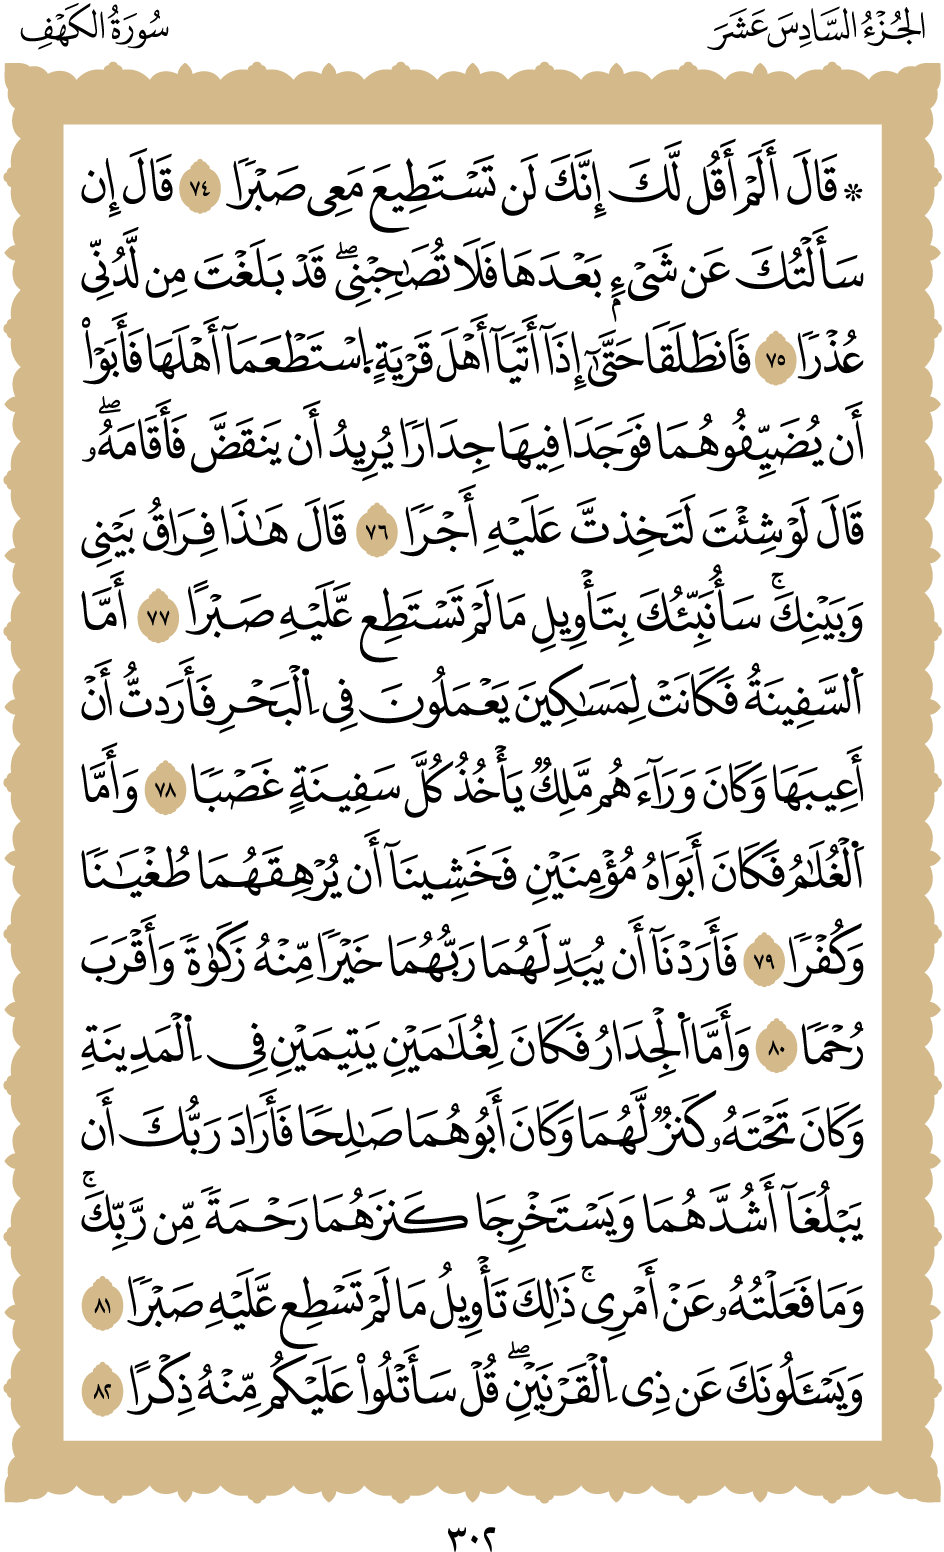 الجُزْءُ السَّادِسَ عَشَرَ
سُورَةُ الكَهْفِ
۞ قَالَ أَلَمْ أَقُل لَّكَ إِنَّكَ لَن تَسْتَطِيعَ مَعِى صَبْرًا ٧٤ قَالَ إِن
سَأَلْتُكَ عَن شَىْءٍۭ بَعْدَهَا فَلَا تُصَٰحِبْنِىۖ قَدْ بَلَغْتَ مِن لَّدُنِّى
عُذْرًا ٧٥ فَاَنطَلَقَا حَتَّىٰٓ إِذَآ أَتَيَآ أَهْلَ قَرْيَةٍ اِ۪سْتَطْعَمَآ أَهْلَهَا فَأَبَوْاْ
أَن يُضَيِّفُوهُمَا فَوَجَدَا فِيهَا جِدَارًا يُرِيدُ أَن يَنقَضَّ فَأَقَامَهُۥۖ
قَالَ لَوْ شِئْتَ لَتَخِذتَّ عَلَيْهِ أَجْرًا ٧٦ قَالَ هَٰذَا فِرَاقُ بَيْنِى
وَبَيْنِكَۚ سَأُنَبِّئُكَ بِتَأْوِيلِ مَا لَمْ تَسْتَطِع عَّلَيْهِ صَبْرًا ٧٧ أَمَّا
اَ۬لسَّفِينَةُ فَكَانَتْ لِمَسَٰكِينَ يَعْمَلُونَ فِى اِ۬لْبَحْرِ فَأَرَدتُّ أَنْ
أَعِيبَهَا وَكَانَ وَرَآءَهُم مَّلِكٌ يَأْخُذُ كُلَّ سَفِينَةٍ غَصْبًا ٧٨ وَأَمَّا
اَ۬لْغُلَٰمُ فَكَانَ أَبَوَاهُ مُؤْمِنَيْنِ فَخَشِينَآ أَن يُرْهِقَهُمَا طُغْيَٰنًا
وَكُفْرًا ٧٩ فَأَرَدْنَآ أَن يُبَدِّلَهُمَا رَبُّهُمَا خَيْرًا مِّنْهُ زَكَوٰةً وَأَقْرَبَ
رُحْمًا ٨٠ وَأَمَّا اَ۬لْجِدَارُ فَكَانَ لِغُلَٰمَيْنِ يَتِيمَيْنِ فِى اِ۬لْمَدِينَةِ
وَكَانَ تَحْتَهُۥ كَنزٌ لَّهُمَا وَكَانَ أَبُوهُمَا صَٰلِحًا فَأَرَادَ رَبُّكَ أَن
يَبْلُغَآ أَشُدَّهُمَا وَيَسْتَخْرِجَا كَنزَهُمَا رَحْمَةً مِّن رَّبِّكَۚ
وَمَا فَعَلْتُهُۥ عَنْ أَمْرِىۚ ذَٰلِكَ تَأْوِيلُ مَا لَمْ تَسْطِع عَّلَيْهِ صَبْرًا ٨١
وَيَسْـَٔلُونَكَ عَن ذِى اِ۬لْقَرْنَيْنِۖ قُلْ سَأَتْلُواْ عَلَيْكُم مِّنْهُ ذِكْرًا ٨٢
٣٠٢